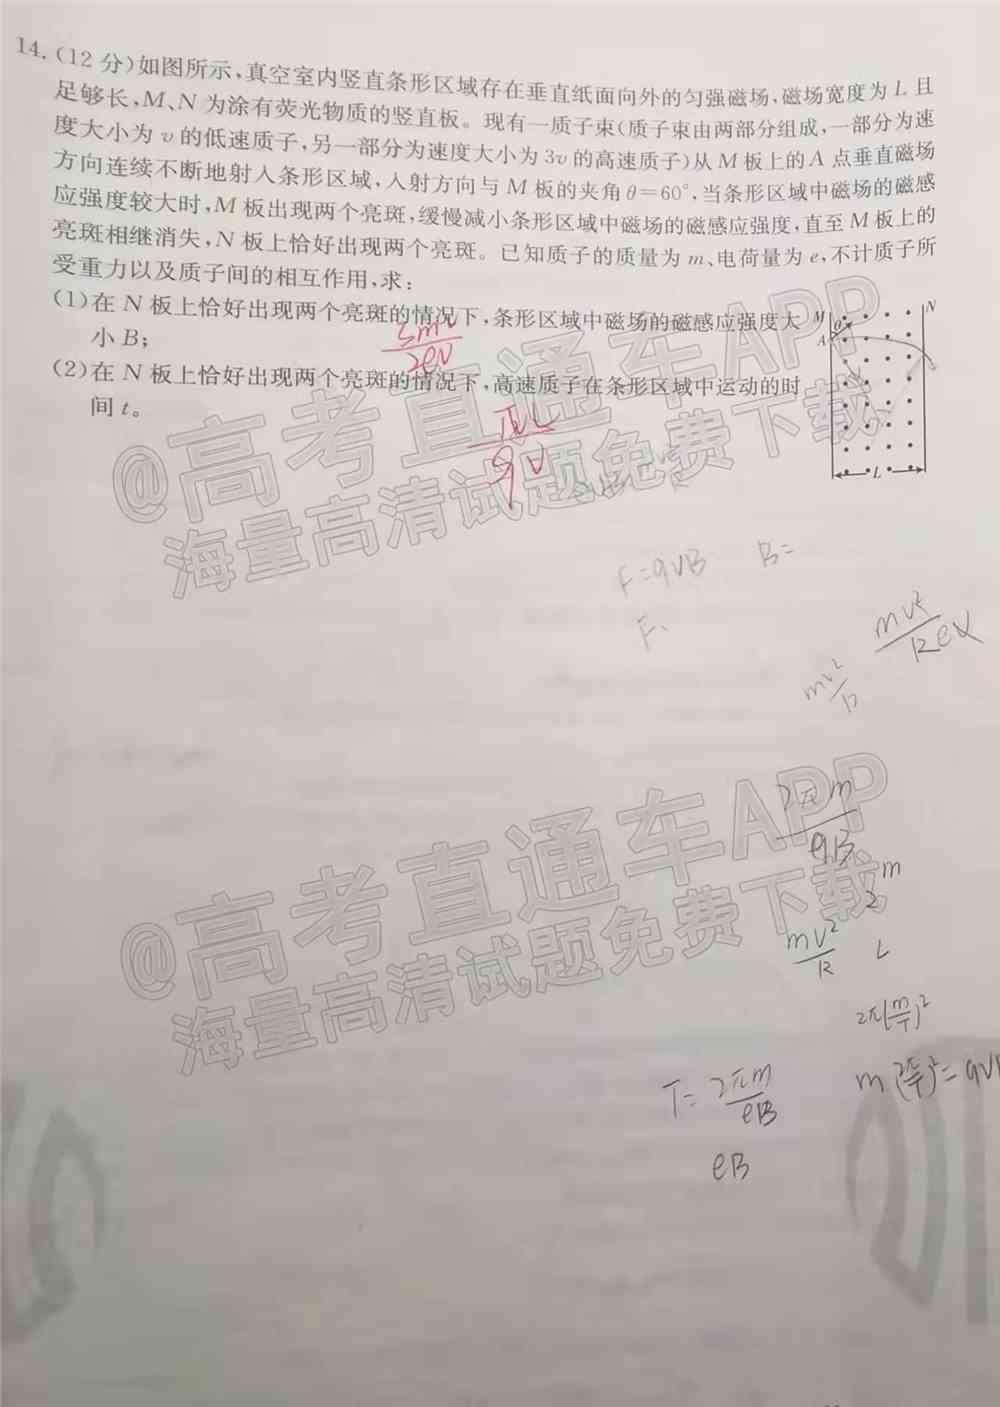 14.(12分)如图所示,真空室内竖直条形区域存在垂直纸面向外的匀强磁场,磁场宽度为L且
足够长,M、N为涂有荧光物质的竖直板。现有一质子束(质子束由两部分组成,一部分为速
度大小为v的低速质子,另一部分为速度大小为3v的高速质子)从M板上的A点垂直磁场
方向连续不断地射入条形区域,入射方向与M板的夹角θ=60°,当条形区域中磁场的磁感
应强度较大时,M板出现两个亮斑,缓慢减小条形区域中磁场的磁感应强度,直至M板上的
亮斑相继消失,N板上恰好出现两个亮斑。已知质子的质量为m、电荷量为e,不计质子所
受重力以及质子间的相互作用,求:
(1)在N板上恰好出现两个亮斑的情况下,条形区域中磁场的磁感应强度大
小B;
(2)在N板上恰好出现两个亮斑的情况下,高速质子在条形区域中运动的时
间t。
M
N
θ
A
L
πL
9V
@高考直通车APP
海量高清试题免费下载
F=qVB
B=
F
mv²
ReV
mv²
R
2πm
qB
@高考直通车APP
海量高清试题免费下载
mV²
R
L
T=2πm
eB
eB